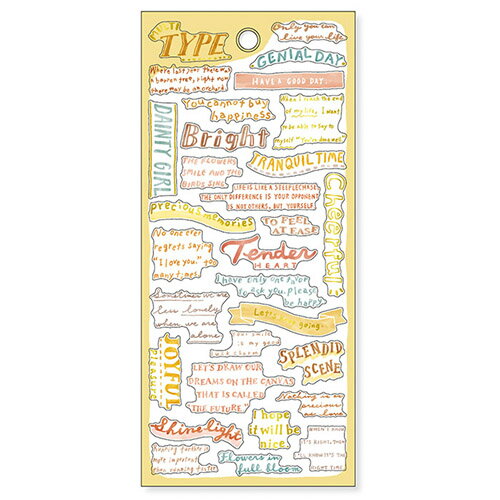 TYPE
Only you can
live your life
GENIAL DAY
HAVE A GOOD DAY.
Where last year there was
a barren tree, right now
there may be an orchard
You cannot buy
happiness
When I reach the end
of my life, I want
to be able to say to
myself "You've done well"
DAINTY GIRL
Bright
THE FLOWERS
SMILE AND THE
BIRDS SING
TRANQUIL TIME
LIFE IS LIKE A STEEPLECHASE.
THE ONLY DIFFERENCE IS YOUR OPPONENT
IS NOT OTHERS, BUT YOURSELF
Cheerful
precious memories
TO FEEL
AT EASE
No one ever
regrets saying
"I love you." too
many times
Tender
HEART
I have only one favor
to ask you. Please
be happy
Sometimes we are
less lonely
when we are
alone
Let's going
Your smile
is my good
luck charm
JOYFUL
Pleasure
SPLENDID
SCENE
LET'S DRAW OUR
DREAMS ON THE CANVAS
THAT IS CALLED
THE FUTURE
Nothing is as
precious
as love
I hope
it will be
nice.
Shine light
WHEN I KNOW
IT'S RIGHT, THEN
KNOW IT'S THE
RIGHT TIME
Running further is
more important
than running faster
Flowers in
full bloom